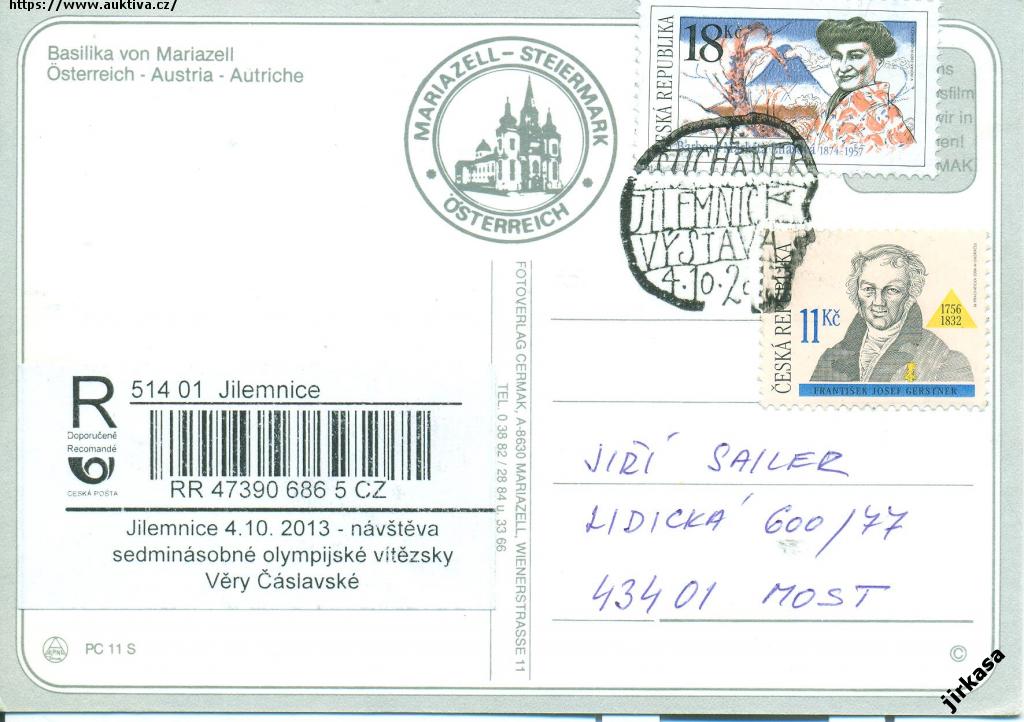 https://www.auktiva.cz/
Basilika von Mariazell
Österreich - Austria - Autriche
MARIAZELL - STEIERMARK
ÖSTERREICH
18 Kč
ČESKÁ REPUBLIKA
1874-1957
ns
sfilm
wir in
en!
MAK
SUCHÁNEK
JILEMNICE
VÝSTAVA
4.10.2
ČESKÁ REPUBLIKA
11 Kč
1756
1832
FRANTIŠEK JOSEF GERSTNER
FOTOVERLAG CERMAK, A-8630 MARIAZELL, WIENERSTRASSE 11
TEL. 0 38 82 / 28 84 u. 33 66
R
Doporučeně
Recomandé
ČESKÁ POŠTA
514 01 Jilemnice
RR 47390 686 5 CZ
Jilemnice 4.10. 2013 - návštěva
sedminásobné olympijské vítězsky
Věry Čáslavské
JIŘÍ SAILER
LIDICKÁ 600/77
43401 MOST
PC 11 S
©
jirkasa